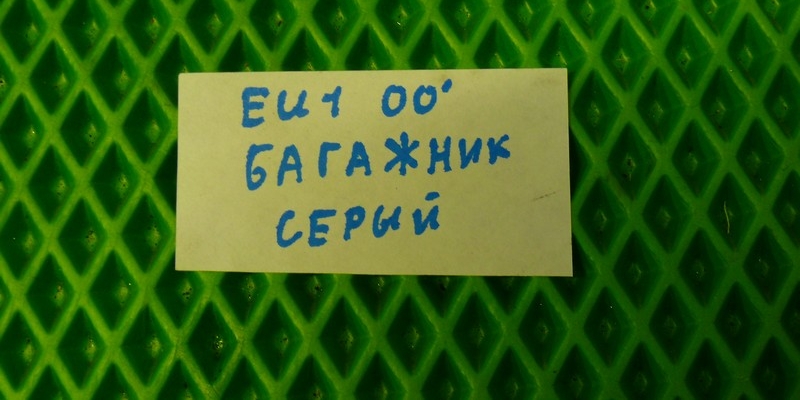 EU1 00'
БАГАЖНИК
СЕРЫЙ